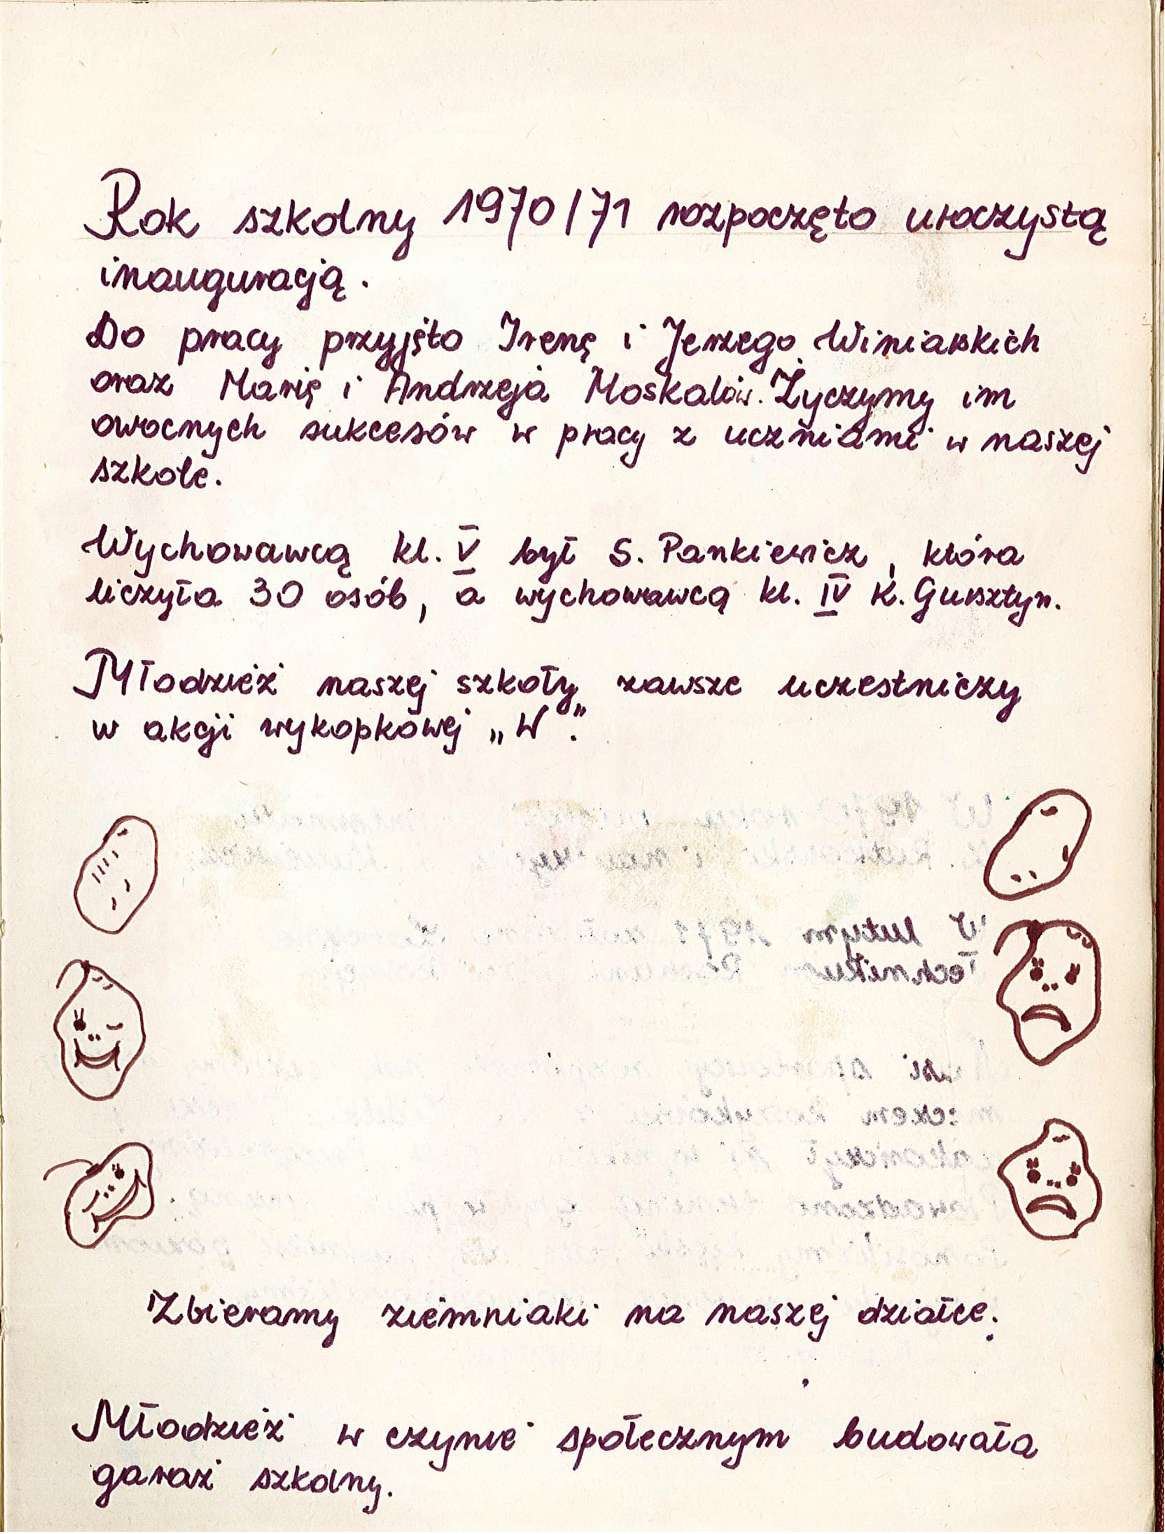 Rok szkolny 1970/71 rozpoczęto uroczystą
inauguracją.
Do pracy przyjęto Irenę i Jerzego Winiarskich
oraz Marię i Andrzeja Moskalów. Życzymy im
owocnych sukcesów w pracy z uczniami w naszej
szkole.
Wychowawcą kl. V był S. Pankiewicz, która
liczyła 30 osób, a wychowawcą kl. IV K. Gursztyn.
Młodzież naszej szkoły zawsze uczestniczy
w akcji wykopkowej „W".
Zbieramy ziemniaki na naszej działce.
Młodzież w czynie społecznym budowała
garaż szkolny.